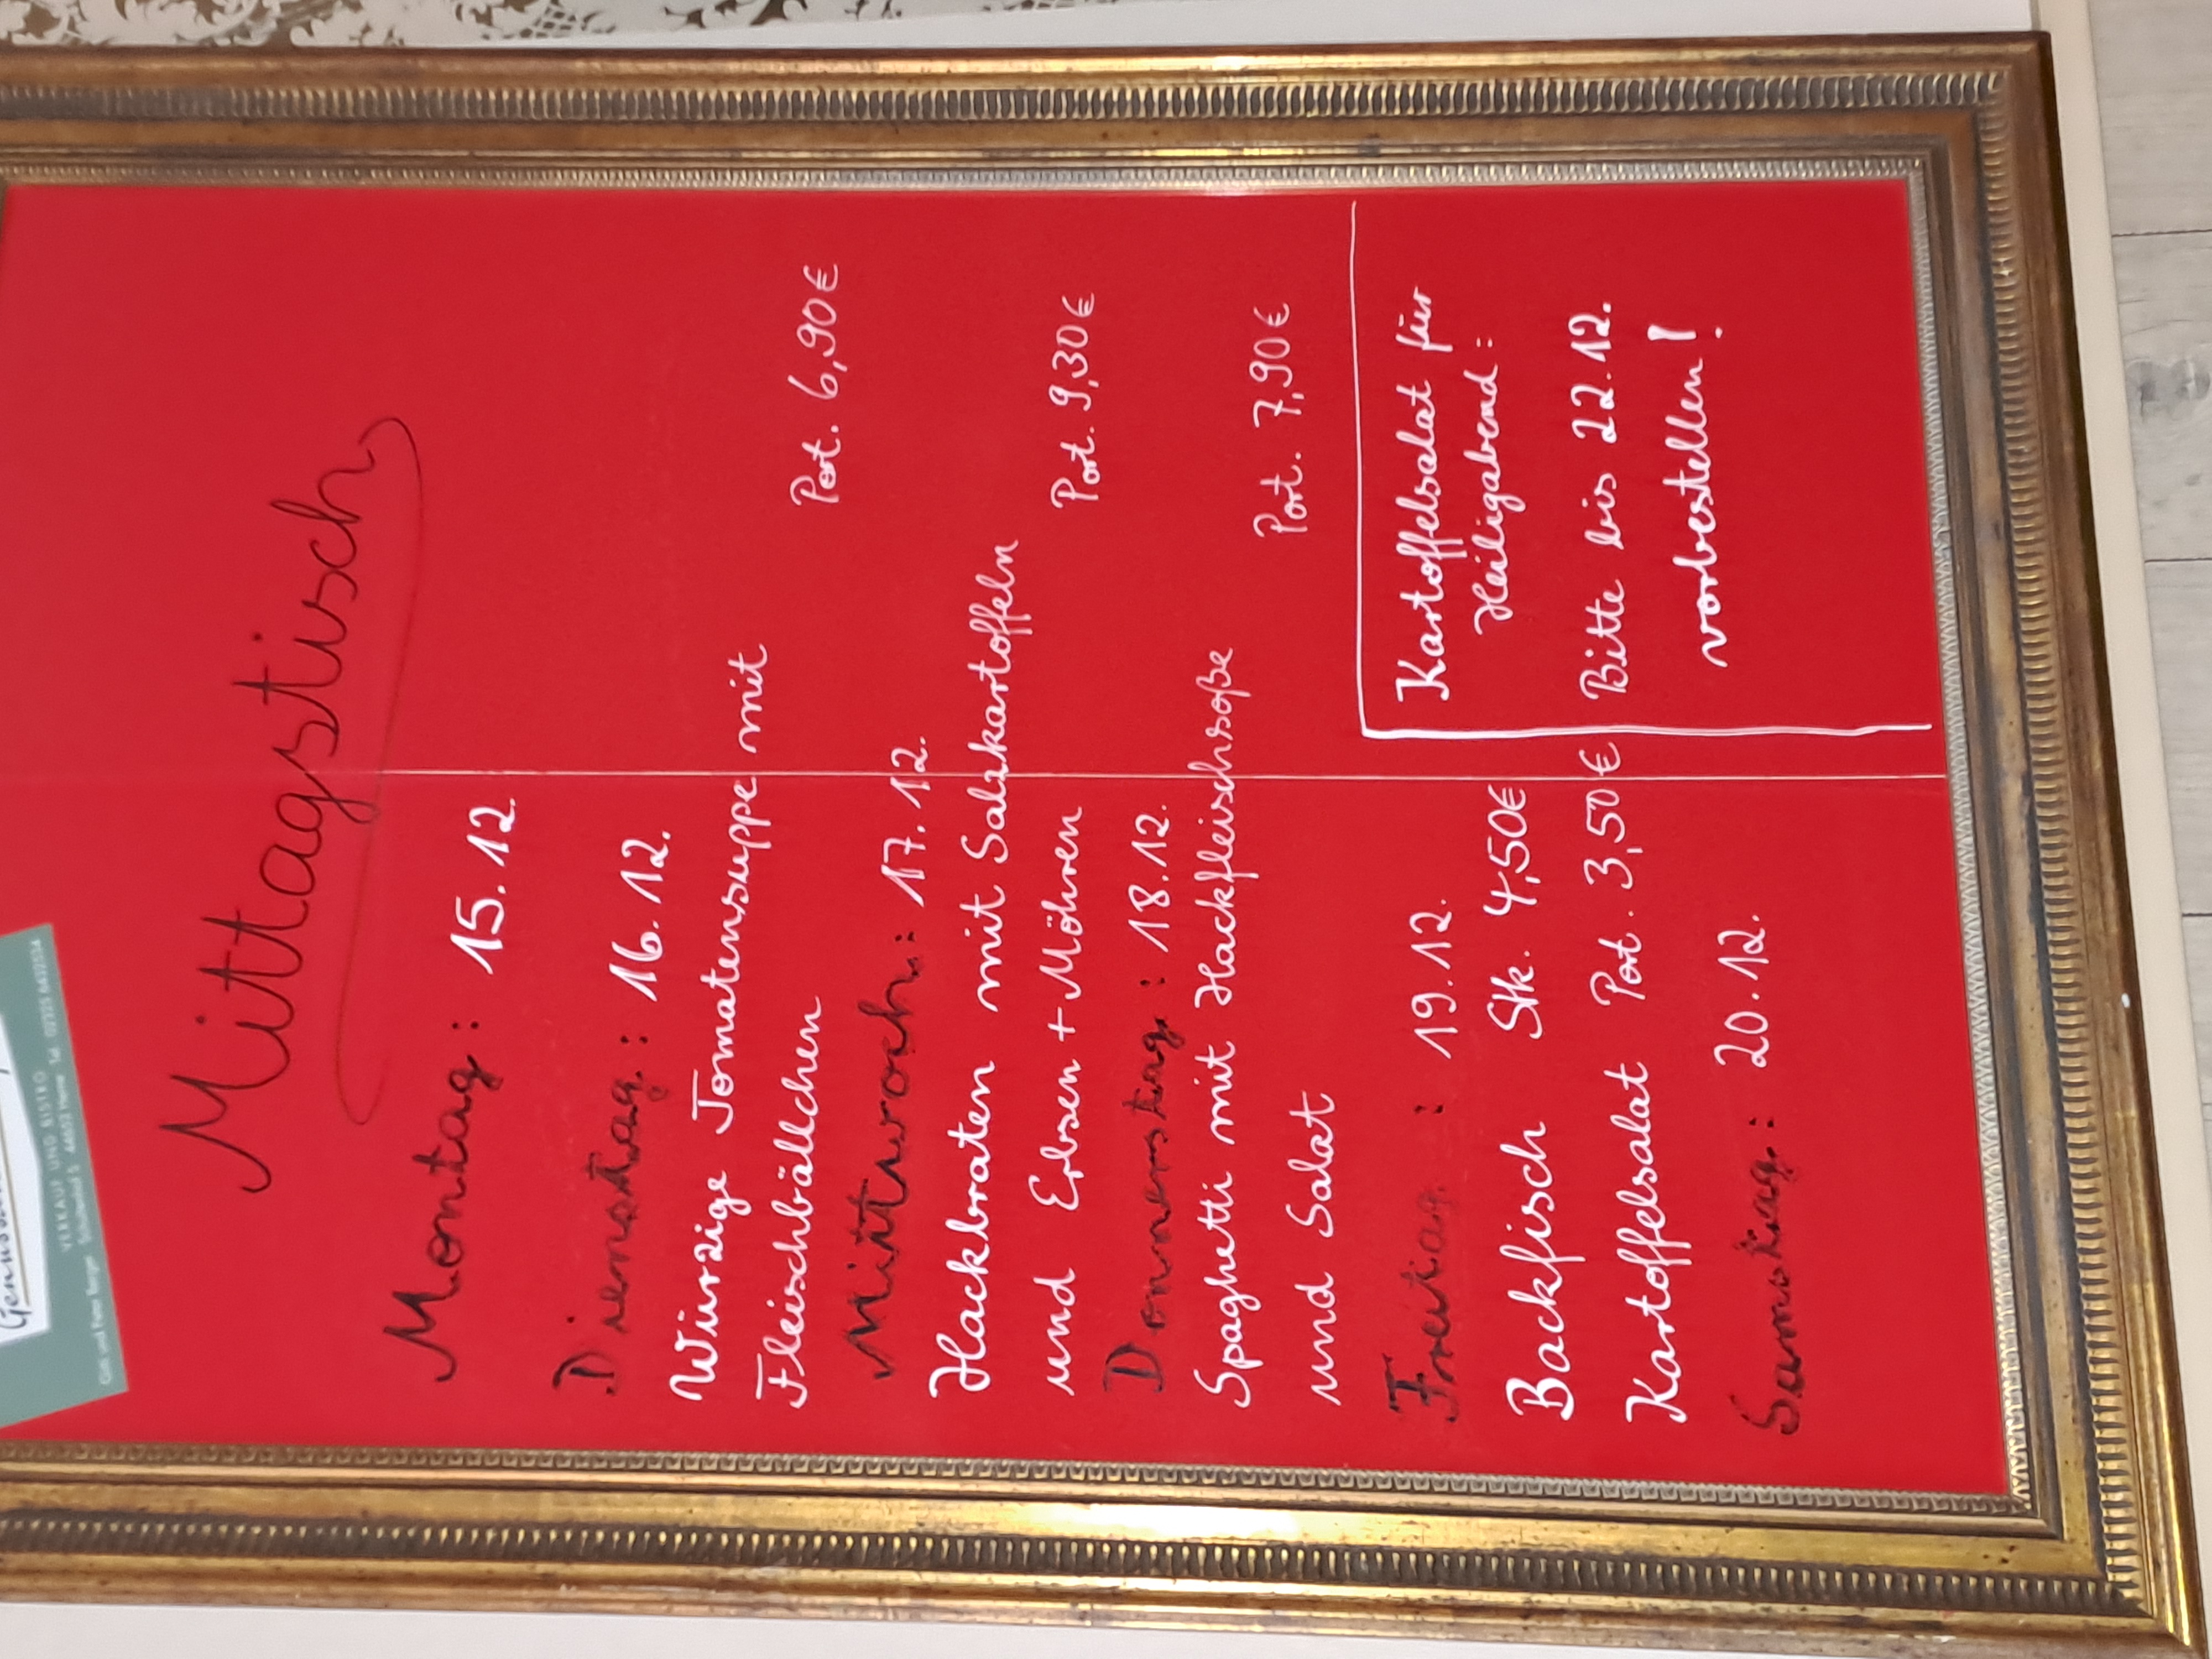 VERKAUF UND BISTRO
Mittagstisch
Montag: 15.12.
Dienstag: 16.12.
Würzige Tomatensuppe mit
Fleischbällchen Port. 6,90€
Mittwoch: 17.12.
Hackbraten mit Salzkartoffeln
und Erbsen + Möhren Port. 9,30€
Donnerstag: 18.12.
Spaghetti mit Hackfleischsoße
und Salat Port. 7,90€
Freitag: 19.12.
Backfisch Stk. 4,50€
Kartoffelsalat Port. 3,50€
Samstag: 20.12.
Kartoffelsalat für
Heiligabend:
Bitte bis 22.12.
vorbestellen!